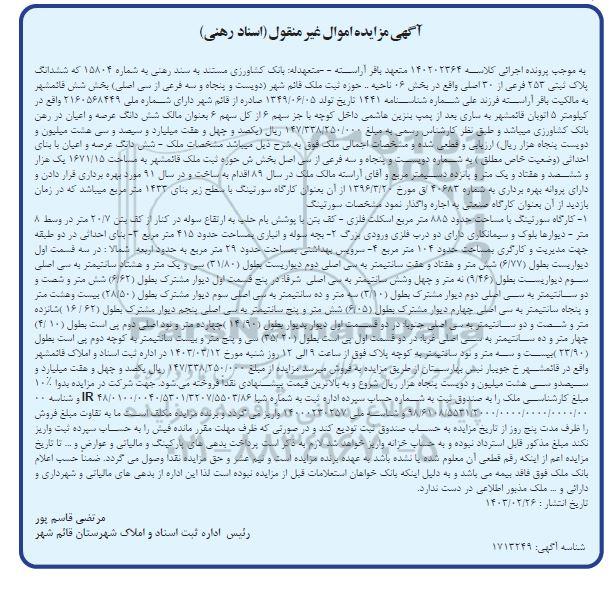 آگهی مزایده اموال غیر منقول (اسناد رهنی)
به موجب پرونده اجرائی کلاسه ۱۴۰۲۰۲۳۶۴ متعهد باقر آراسته - -متعهدله: بانک کشاورزی مستند به سند رهنی به شماره ۱۵۸۰۴ که ششدانگ
پلاک ثبتی ۲۵۳ فرعی از ۳۰ اصلی واقع در بخش ۰۶ ناحیه .. حوزه ثبت ملک قائم شهر (دویست و پنجاه و سه فرعی از سی اصلی) بخش شش قائمشهر
به مالکیت باقر آراسته فرزند علی شماره شناسنامه ۱۴۴۱ تاریخ تولد ۱۳۴۹/۰۶/۰۵ صادره از قائم شهر دارای شماره ملی ۲۱۶۰۵۶۸۴۴۹ واقع در
کیلومتر ۵ اتوبان قائمشهر به ساری بعد از پمپ بنزین هاشمی داخل کوچه با جز سهم ۶ از کل سهم ۶ بعنوان مالک شش دانگ عرصه و اعیان در رهن
بانک کشاورزی میباشد و طبق نظر کارشناس رسمی به مبلغ ۱۴۷/۳۳۸/۲۵۰/۰۰۰ ریال (یکصد و چهل و هفت میلیارد و سیصد و سی هشت میلیون و
دویست پنجاه هزار ریال) ارزیابی و قطعی شده و مشخصات اجمالی ملک فوق به شرح ذیل میباشد مشخصات ملک - شش دانگ عرصه و اعیان با بنای
احداثی (وضعیت خاص مطلق) به شماره دویست و پنجاه و سه فرعی از سی اصل بخش ش حوزه ثبت ملک قائمشهر به مساحت ۱۶۷۱/۱۵ یک هزار
و ششصد و هفتاد و یک متر و پانزده دسیمتر مربع و آقای آراسته مالک ملک در سال ۸۹ اقدام به ساخت و در سال ۹۱ مورد بهره برداری قرار دادن و
دارای پروانه بهره برداری به شماره ۴۰۶۸۳ /ق مورخ ۱۳۹۶/۳/۲۰ از آن بعنوان کارگاه سورتینگ با سطح زیر بنای ۱۴۳۳ متر مربع میباشد که در زمان
بازدید از آن بعنوان کارگاه صنعتی به اجاره واگذار نمود مشخصات سورتینگ
۱- کارگاه سورتینگ با مساحت حدود ۸۸۵ متر مربع اسکلت فلزی - کف بتن با پوشش بام حلب به ارتفاع سوله در کنار از کف بتن ۲۰/۷ متر در وسط ۸
متر - دیوارها بلوک و سیمانکاری دارای دو درب فلزی ورودی بزرگ ۲- بچه سوله و انباری بمساحت حدود ۴۱۵ متر مربع ۳- بنای احداثی در دو طبقه
جهت مدیریت و کارگری بمساحت حدود ۱۰۴ متر مربع ۴- سرویس بهداشتی بمساحت حدود ۲۹ متر مربع به حدود اربعه: شمالا : در سه قسمت اول
دیواریست بطول (۶/۷۷) شش متر و هفتاد و هفت سانتیمتر به سی اصلی دوم دیواریست بطول (۳۱/۸۰) سی و یک متر و هشتاد سانتیمتر به سی اصلی
سوم دیواریست بطول (۹/۴۶) نه متر و چهل وشش سانتیمتر به سی اصلی شرقا: در پنج قسمت اول دیوار مشترک بطول (۶/۶۲) شش متر و شصت و
دو سانتیمتر به سی اصلی دوم دیوار مشترک بطول (۳/۱۰) سه متر و ده سانتیمتر به سی اصلی سوم دیوار مشترک بطول (۲۸/۵۰) بیست وهشت متر
و پنجاه سانتیمتر به سی اصلی چهارم دیوار مشترک بطول (۶/۰۵) شش متر و پنج سانتیمتر به سی اصلی پنجم دیوار مشترک بطول (۱۶/۶۲) شانزده
متر و شصت و دو سانتیمتر به سی اصلی جنوبا: در دو قسمت اول دیوار بدیوار بطول (۱۴/۹۰) چهارده متر و نود اصلی دوم پی است بطول (۴/۱۰)
چهار متر و ده سانتیمتر به سی اصلی غربا: در دو قسمت اول پی است بطول (۳۵/۲۰) سی و پنج متر و بیست سانتیمتر به کوچه دوم پی است بطول
(۲۳/۹۰) بیست و سه متر و نود سانتیمتر به کوچه پلاک فوق از ساعت ۹ الی ۱۲ روز شنبه مورخ ۱۴۰۳/۰۳/۱۲ در اداره ثبت اسناد و املاک قائمشهر
واقع در قائمشهر خ جویبار نبش بهارستان از طریق مزایده به فروش میرسد مزایده از مبلغ ۱۴۷/۳۳۸/۲۵۰/۰۰۰ ریال یکصد و چهل و هفت میلیارد و
سیصدو سی هشت میلیون و دویست پنجاه هزار ریال شروع و به بالاترین قیمت پیشنهادی نقدا فروخته می‌شود. جهت شرکت در مزایده بدوا ۱۰٪
مبلغ کارشناسی ملک را به صندوق ثبت به شماره حساب سپرده اداره ثبت به شماره شبا IR و شناسه ۰۰
و شناسه ملی ۱۴۰۰۰۲۳۰۲۵۷ واریز می گردد و برنده مزایده مکلف است ما به تفاوت مبلغ فروش
را ظرف مدت پنج روز از تاریخ مزایده به حساب صندوق ثبت تودیع کند و در صورتی که ظرف مهلت مقرر مانده فیش را به حساب سپرده ثبت واریز
نکند مبلغ مذکور قابل استرداد نبوده و به حساب خزانه واریز خواهد شد لازم به ذکر است پرداخت بدهی های پارکینگ و مالیاتی و عوارض و ... تا تاریخ
مزایده اعم از اینکه رقم قطعی آن معلوم شده یا نشده باشد به عهده برنده مزایده است و نیم عشر و حق مزایده نقدا وصول می گردد. ضمنا حسب اعلام
بانک ملک فوق فاقد بیمه می باشد و به دلیل اینکه بانک خواهان استعلامات قبل از مزایده نبوده است لذا این اداره از بدهی های مالیاتی و شهرداری و
دارائی و ... ملک مذبور اطلاعی در دست ندارد.
تاریخ انتشار : ۱۴۰۳/۰۲/۲۶
مرتضی قاسم پور
رئیس اداره ثبت اسناد و املاک شهرستان قائم شهر
شناسه آگهی: ۱۷۱۳۲۴۹